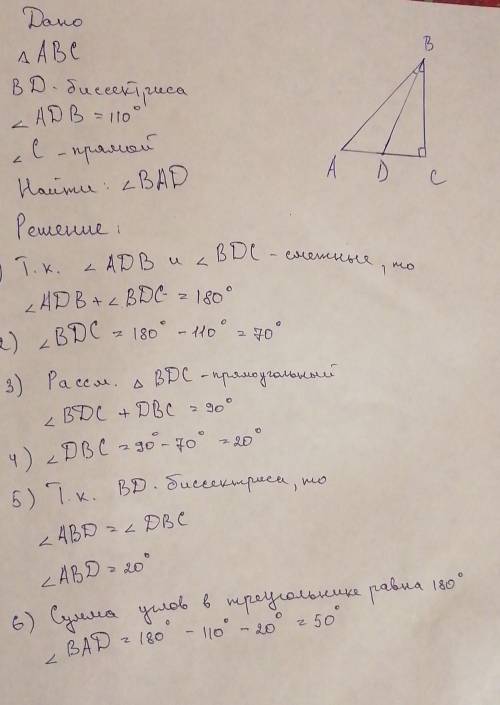 Дано
△ ABC
BD - биссектриса
∠ ADB = 110°
∠ C - прямой
Найти: ∠ BAD
Решение:
) Т.к. ∠ ADB и ∠ BDC - смежные, то
∠ ADB + ∠ BDC = 180°
2) ∠ BDC = 180° - 110° = 70°
3) Рассм. △ BDC - прямоугольный
∠ BDC + DBC = 90°
4) ∠ DBC = 90° - 70° = 20°
5) Т.к. BD - биссектриса, то
∠ ABD = ∠ DBC
∠ ABD = 20°
6) Сумма углов в треугольнике равна 180°
∠ BAD = 180° - 110° - 20° = 50°
B
A D C